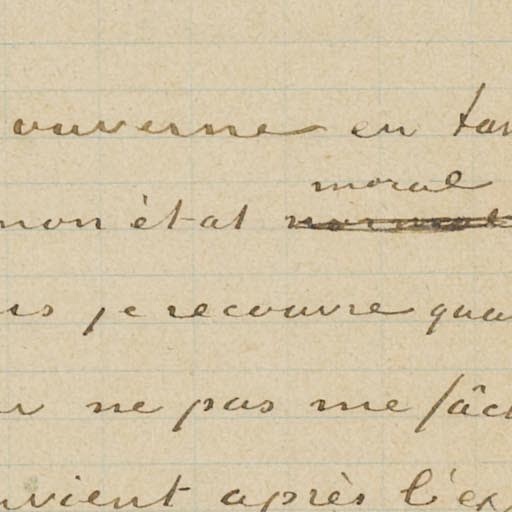 ouverne en tan
moral
mon état normal
rs je recouvre qua
ne pas me fâch
vient après l'ex